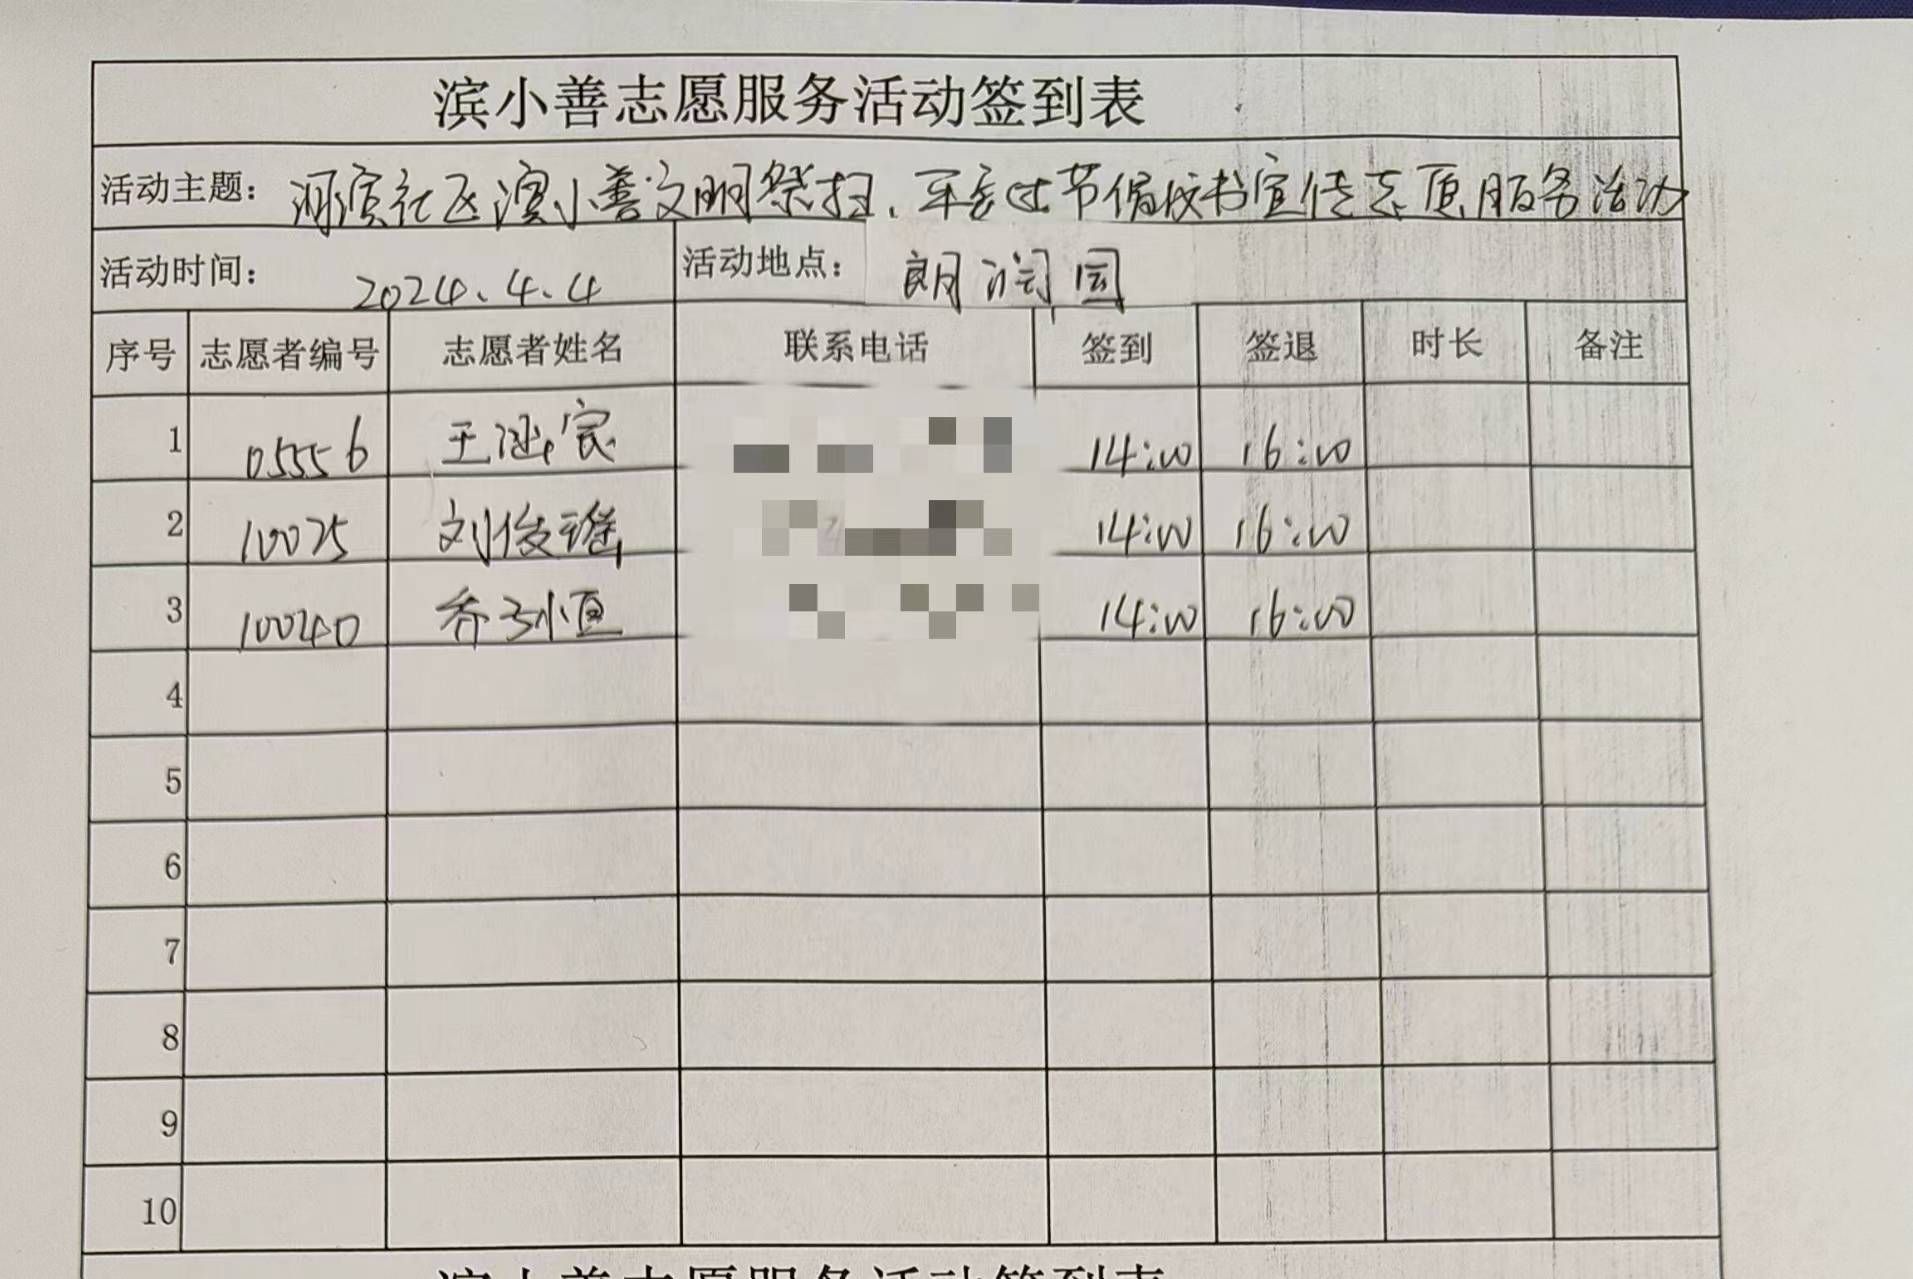 滨小善志愿服务活动签到表
活动主题： 河滨社区滨小善文明祭扫、平安过节倡议书宣传志愿服务活动
活动时间： 2024.4.4 活动地点： 朗润园
序号 志愿者编号 志愿者姓名 联系电话 签到 签退 时长 备注
1 05556 王涵宸 14:00 16:00
2 10075 刘俊瑶 14:00 16:00
3 10040 乔 14:00 16:00
4
5
6
7
8
9
10
滨小善志愿服务活动签到表